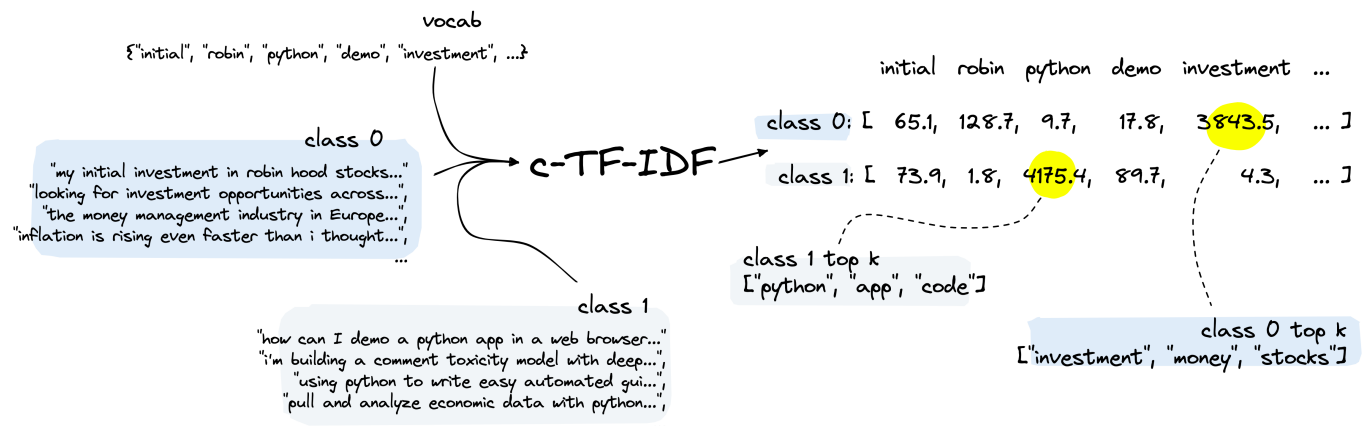 vocab
{"initial", "robin", "python", "demo", "investment", ...}
class 0
"my initial investment in robin hood stocks..."
"looking for investment opportunities across...",
"the money management industry in Europe...",
"inflation is rising even faster than i thought...",
...
class 1
"how can I demo a python app in a web browser..."
"i'm building a comment toxicity model with deep...",
"using python to write easy automated gui...",
"pull and analyze economic data with python...",
c-TF-IDF
initial robin python demo investment ...
class 0: [ 65.1, 128.7, 9.7, 17.8, 3843.5, ... ]
class 1: [ 73.9, 1.8, 4175.4, 89.7, 4.3, ... ]
class 1 top k
["python", "app", "code"]
class 0 top k
["investment", "money", "stocks"]